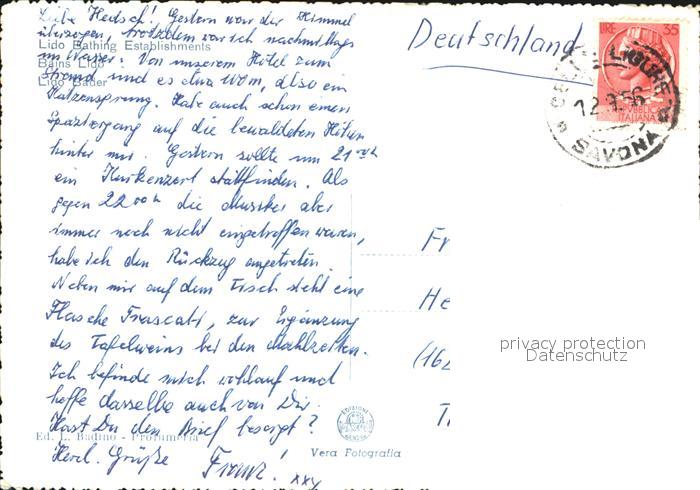 Liebe Hedsch! Gestern war der Himmel
überzogen, trotzdem war ich nachmittags
im Wasser. Von unserem Hotel zum
Lido Bathing Establishments
Bains Lido
Strand sind es etwa 100m, also ein
Lido Bäder
Katzensprung. Habe auch schon einen
Spaziergang auf die bewaldeten Höhen
hinter mir. Gestern sollte um 21 00 h
ein Kurkonzert stattfinden. Als
gegen 22 00 h die Musiker aber
immer noch nicht eingetroffen waren,
habe ich den Rückzug angetreten.
Neben mir auf dem Tisch steht eine
Flasche Frascati, zur Ergänzung
des Tafelweins bei den Mahlzeiten.
Ich befinde mich wohlauf und
hoffe dasselbe auch von Dir.
Hast Du den Brief besorgt?
Ed. L. Badino - Profumeria
Herzl. Grüße Franz! xxx
Vera Fotografia
EDIZIONE
Deutschland
LIRE 35
REPUBBLICA
ITALIANA
LIGURE
12.9.56
SAVONA
Fr
He
(16
T
privacy protection
Datenschutz